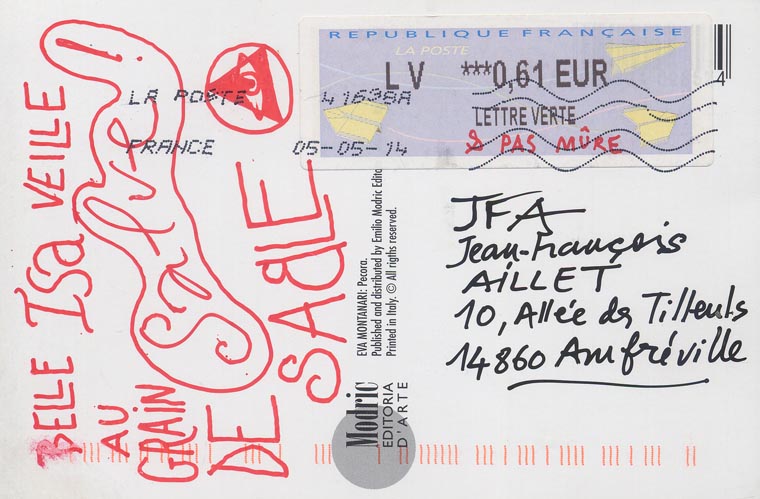 BELLE ISA VEILLE
AU
GRAIN
DE SABLE
Salve!
LA POSTE 41638A
FRANCE 05-05-14
REPUBLIQUE FRANÇAISE
LA POSTE
LV ***0,61 EUR
LETTRE VERTE
& PAS MÛRE
4
EVA MONTANARI: Pecora.
Published and distributed by Emilio Modric Edito
Printed in Italy. © All rights reserved.
Modric
EDITORIA
D'ARTE
JFA
Jean-François
AILLET
10, Allée des Tilleuls
14860 Amfréville